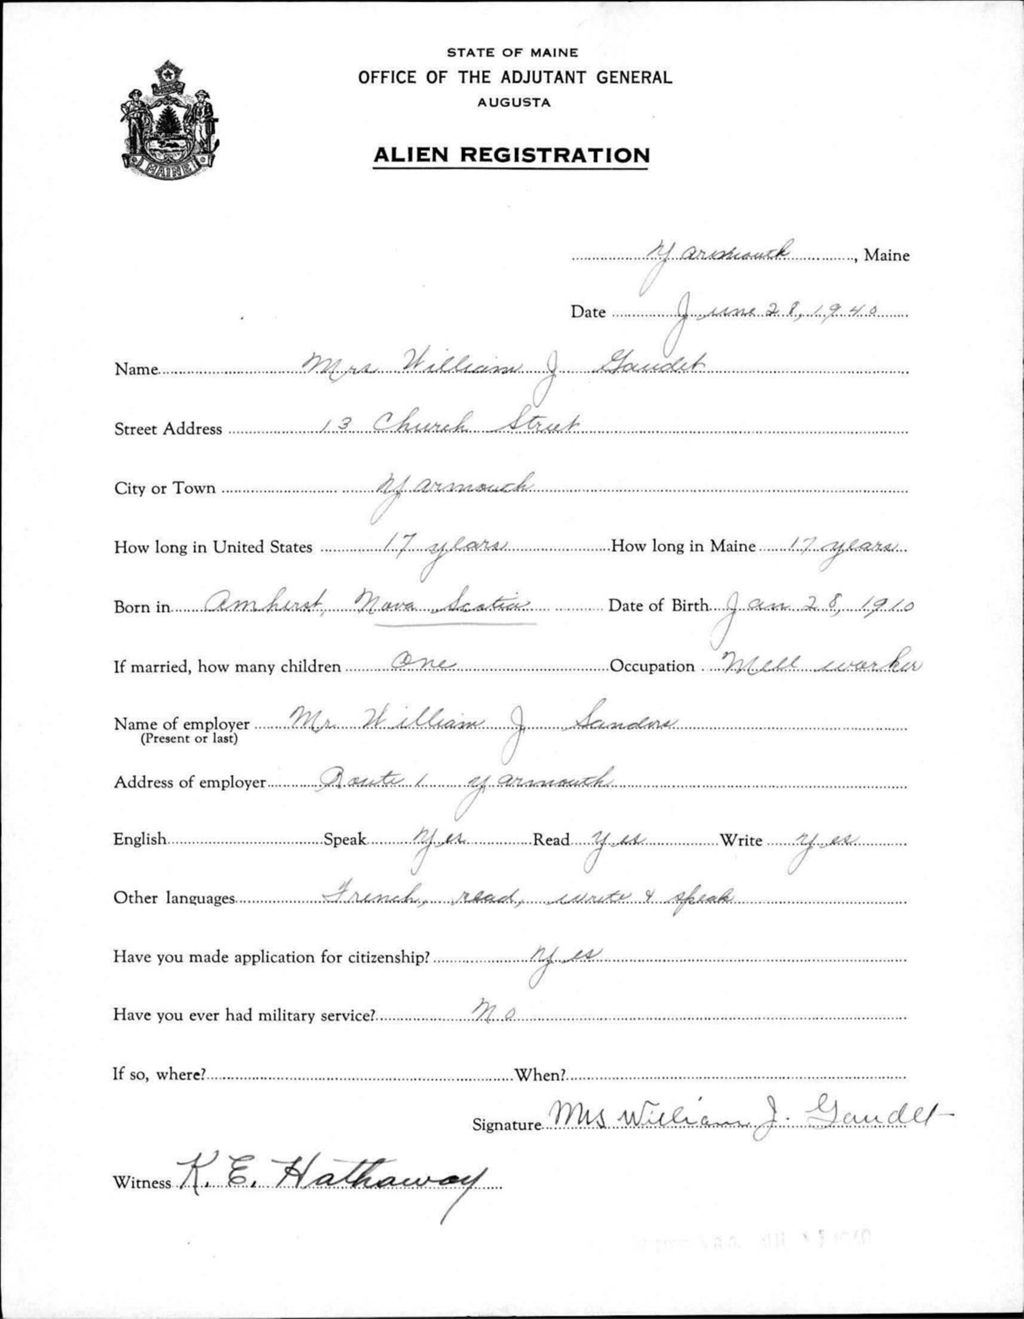 STATE OF MAINE
OFFICE OF THE ADJUTANT GENERAL
AUGUSTA
ALIEN REGISTRATION
MAINE
Yarmouth, Maine
Date June 28, 1940
Name Mrs William J Gaudet
Street Address 13 Church Street
City or Town Yarmouth
How long in United States 17 years How long in Maine 17 years
Born in Amherst, Nova Scotia Date of Birth Jan 28, 1910
If married, how many children One Occupation Mill worker
Name of employer Mr. William J Sanders
(Present or last)
Address of employer Route 1 Yarmouth
English Speak Yes Read Yes Write Yes
Other languages French, read, write & speak
Have you made application for citizenship? Yes
Have you ever had military service? No
If so, where? When?
Signature Mrs William J. Gaudet
Witness K. E. Hathaway